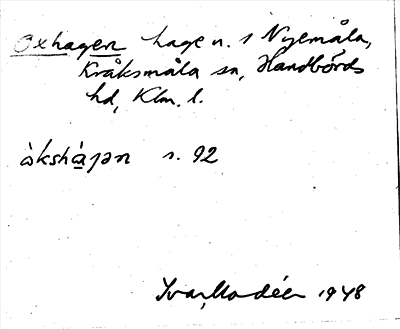 Oxhagen hage n. s Nyemåla,
Kråksmåla sn, Handbörds
hd, Klm. l.
àkshàɡən s. 92
Ivar Modéer 1948